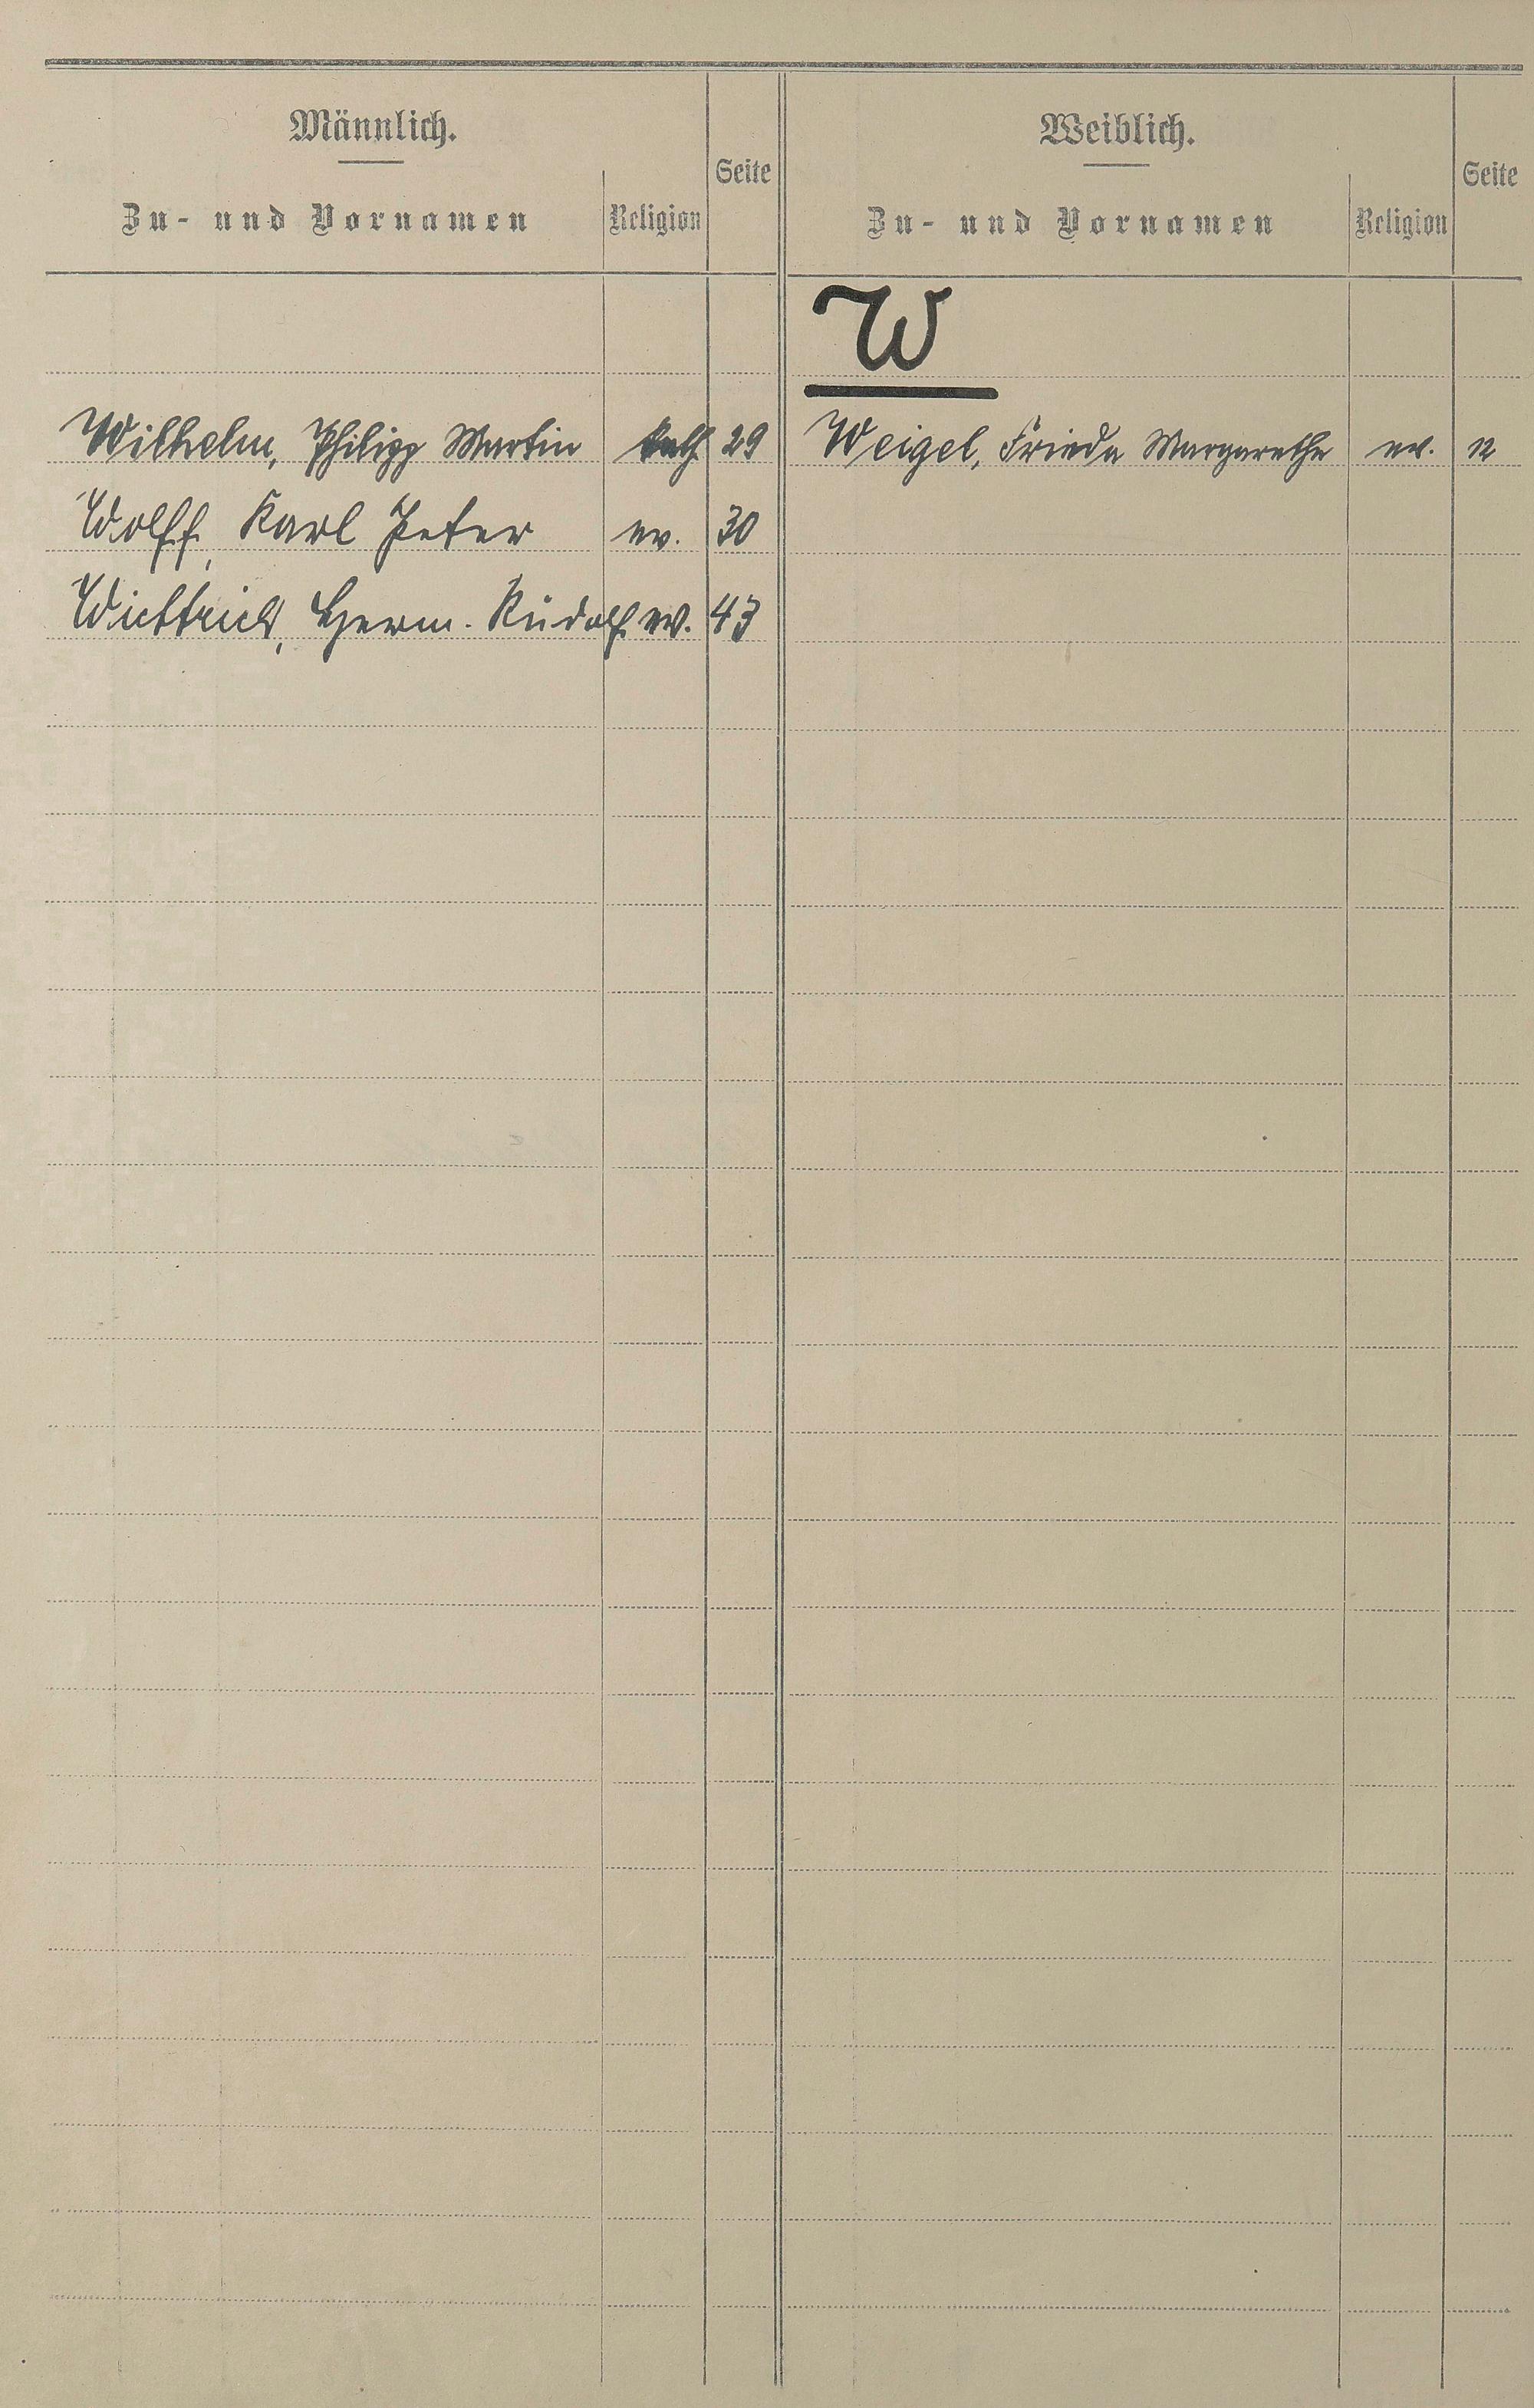 Männlich.
Zu- und Vornamen Religion Seite
Wilhelm, Philipp Martin kath 29
Wolff, Karl Peter ev. 30
Wittrich, Herm. Rudolf ev. 43
Weiblich.
Zu- und Vornamen Religion Seite
W
Weigel, Frieda Margarethe ev. 12